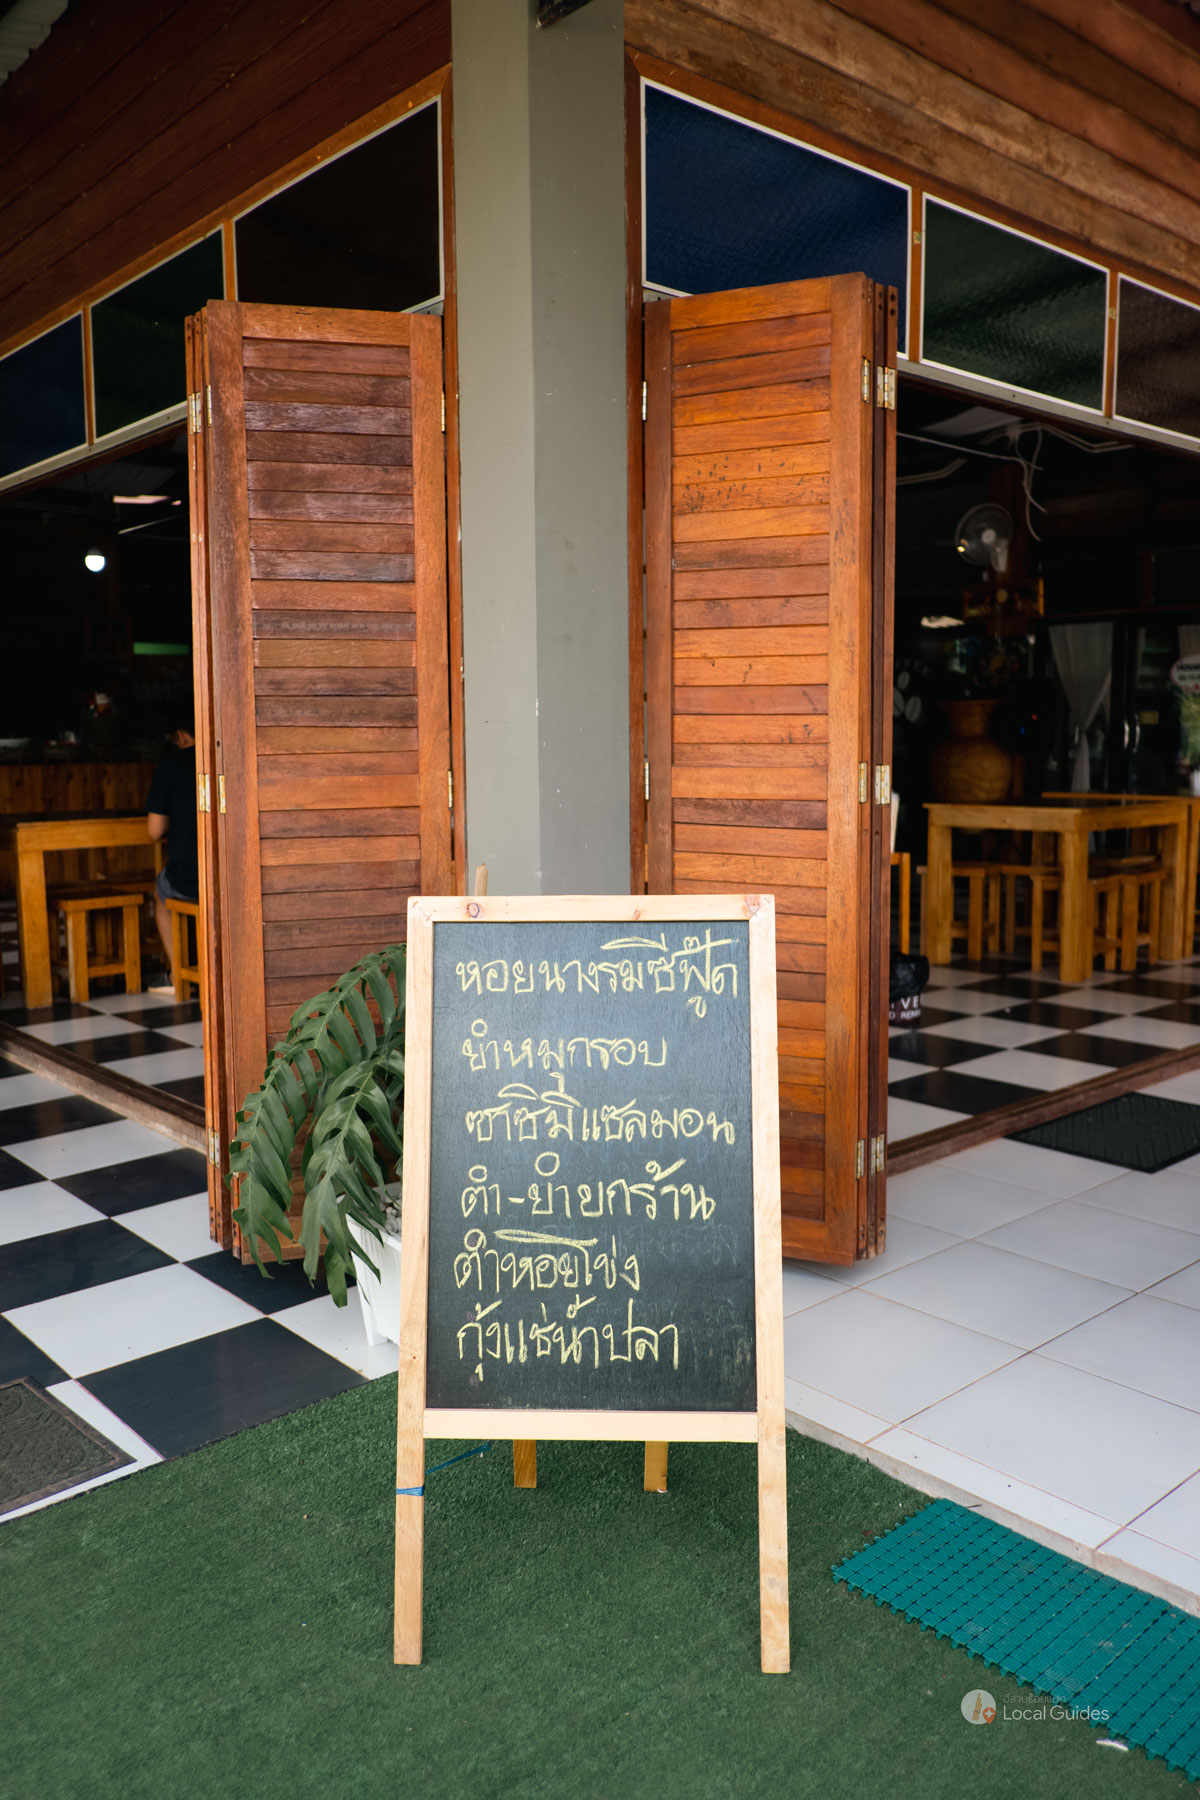 หอยนางรมซีฟู๊ด
ยำหมูกรอบ
ซาซิมิแซลมอน
ตำ-ยำยกร้าน
ตำหอยโข่ง
กุ้งแช่น้ำปลา
อีสานร้อยแปด
Local Guides